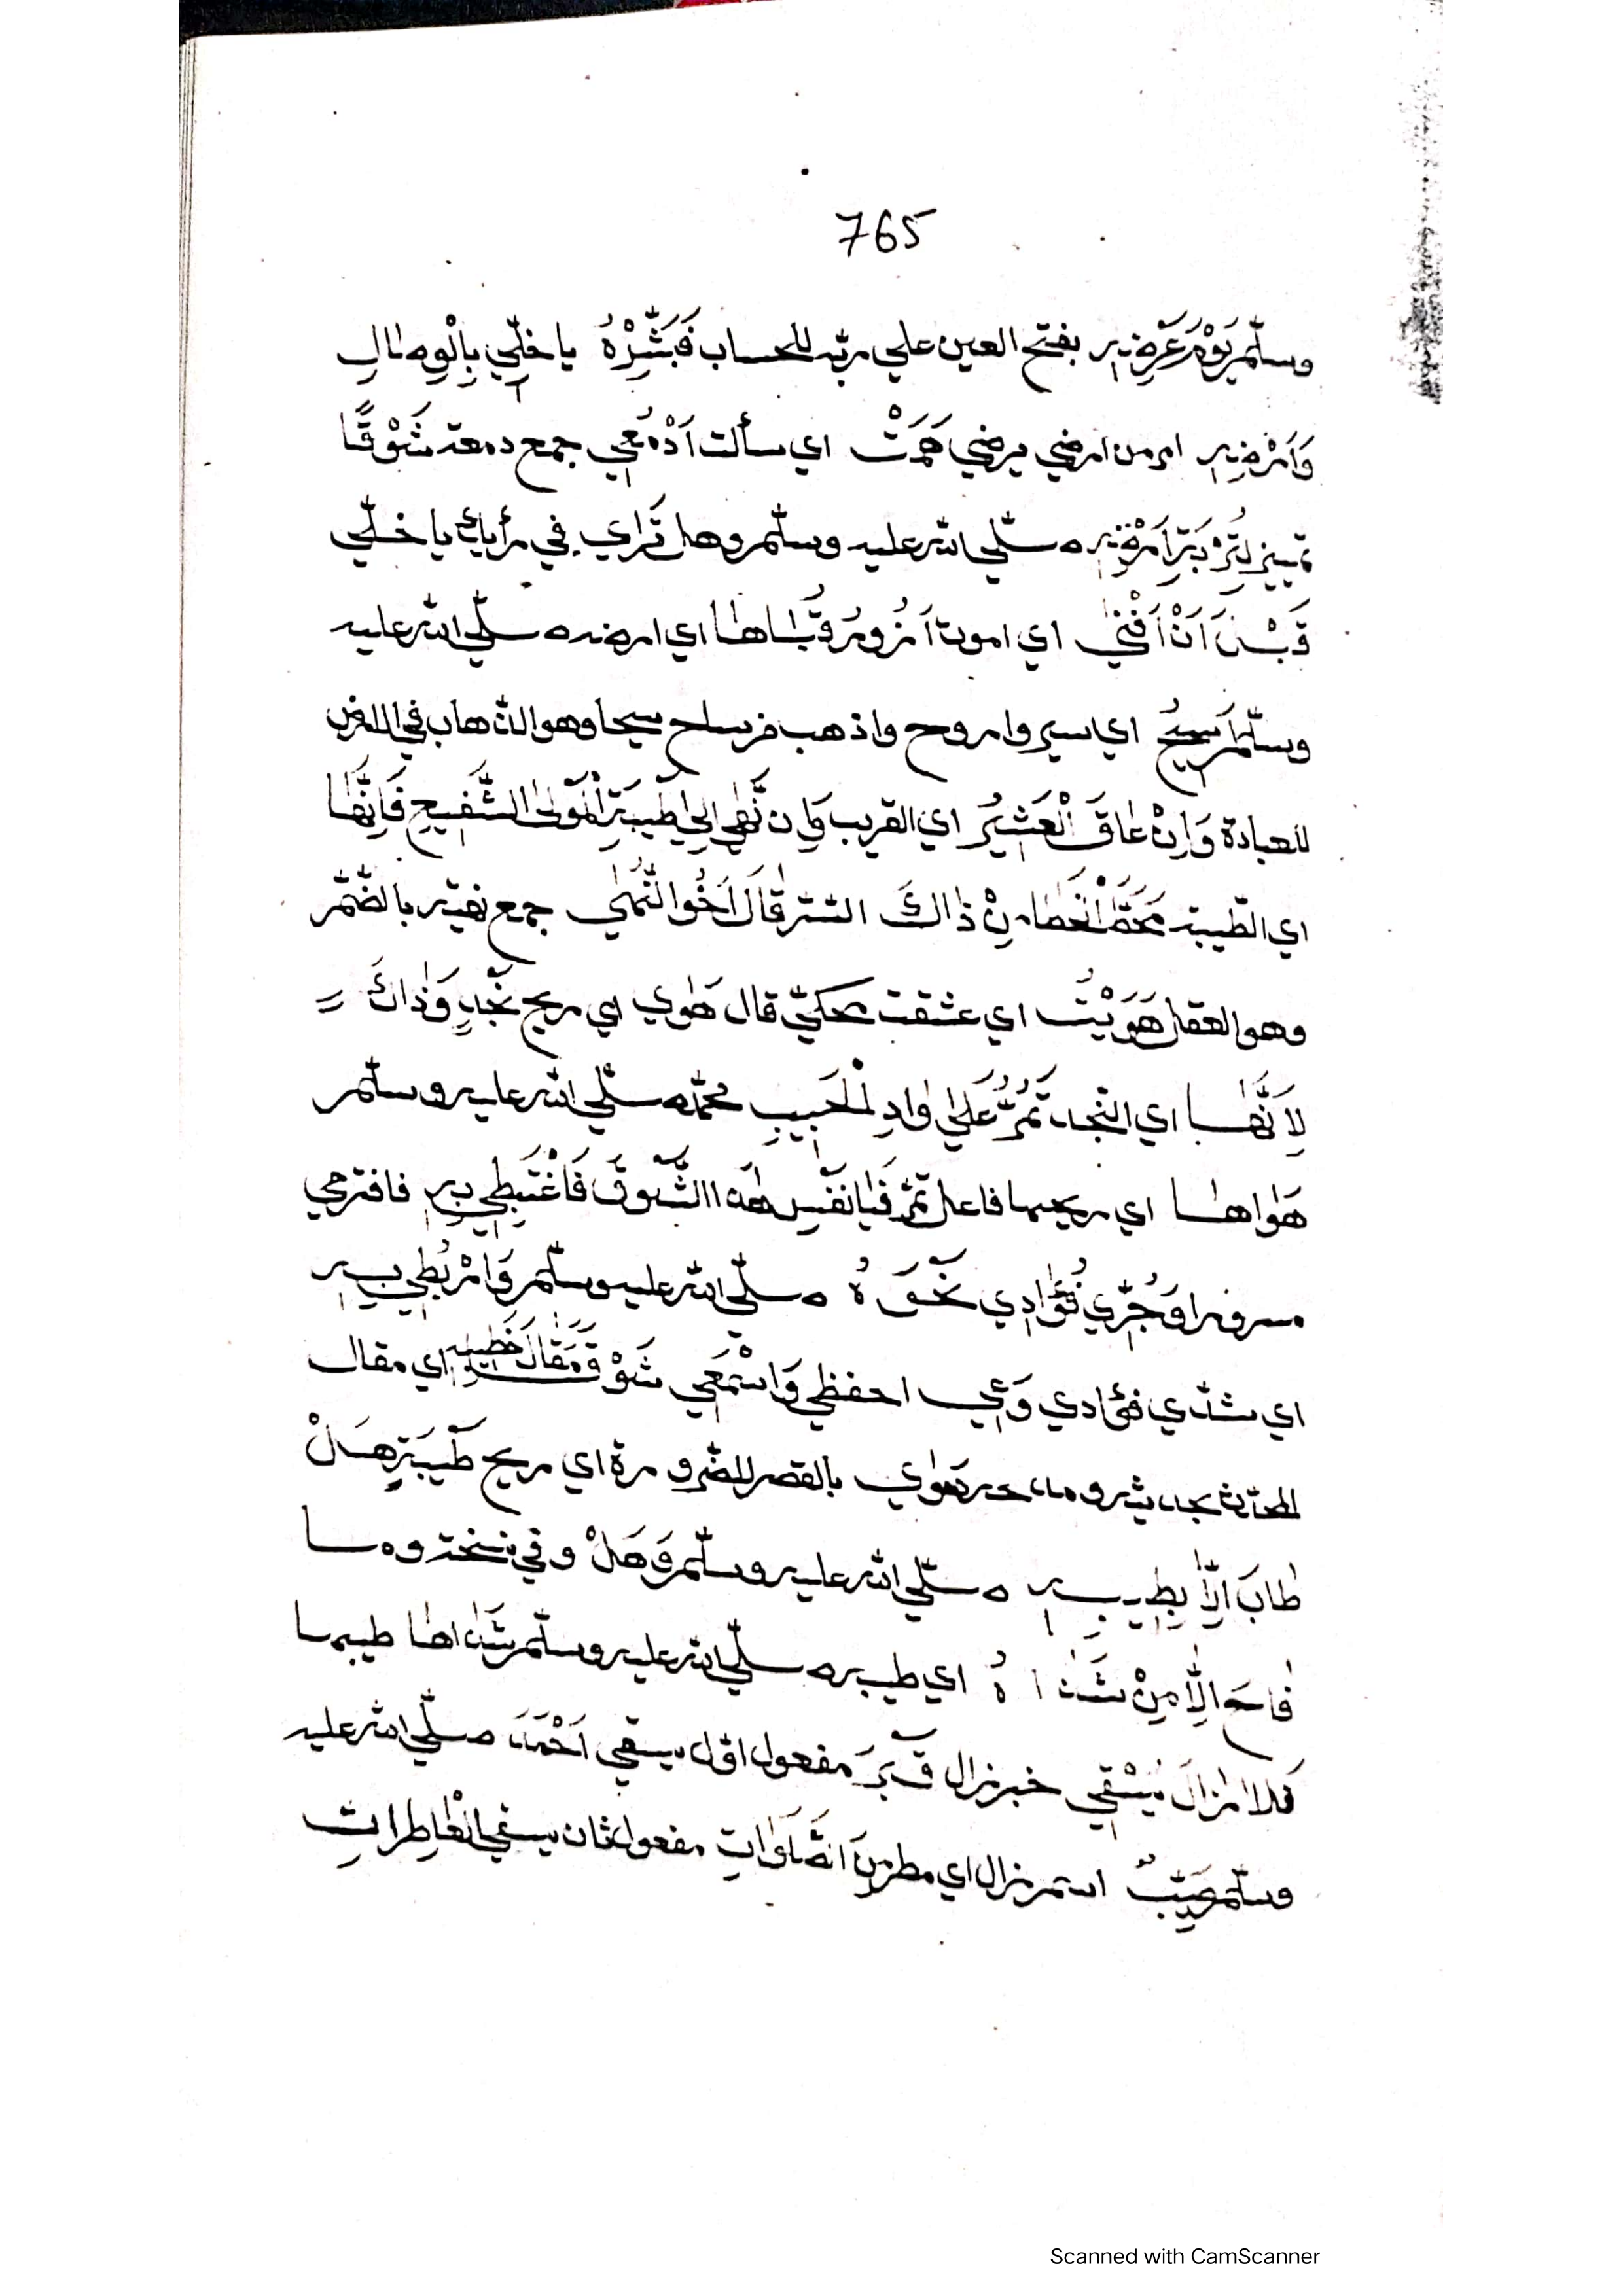 765
وسلّم يَوْمَ عَرْضِهِ بفتح العين علي ربّه للحساب فَبَشِّرْهُ يا خلّي بِالْوِصالِ
وَأَرْضِهِ امر من ارضي يرضي هَمَتْ اي سألت اَدْمُعِي جمع دمعة شَوْقًا
تمييز لِتُرْبَةِ اَرْضِهِ صلّي الله عليه وسلّم وهل تَراي في رأيك يا خلّي
قَبْلَ اَنْ اَفْنٰى اي اموت اَزُورُ قُبَاها اي ارضه صلّي الله عليه
وسلّم اَسِيحُ اي اسير واروح واذهب من ساح سيحا وهو الذّهاب في الارض
للعبادة وَاِنْ عاقَ الْعَشِيرُ اي القريب عن نَهْي الي طَيْبَةِ الْمَوْلٰى الشَّفِيحِ فَاِنَّها
اي الطّيبة مَحَطُّ الْخَطا مِنْ ذاكَ الستر قالَ اَخُو النُّهٰي جمع نهية بالضّمّ
وهو العقل هَوَيْتُ اي عشقت حكيّ قال هَوٰي اي ريح نَجْدٍ وَذاكَ =
لِاَنَّها اي النّجد تَمُرُّ عَلٰي وادِ الْحَبِيبِ محمّد صلّي الله عليه وسلّم
هَواها اي ريحها فاعل تمرّ فَيا نَفْسِ هٰذا الشَّوْقُ فَاغْتَبِطِي بِهِ فافترحي
مسرورا وَجُرِّي فُؤادِي نَحْوَهُ صلّي الله عليه وسلّم وَارْبُطِي بِهِ
اي شدّي فؤادي وَعِي احفظي وَاسْمَعِي شَوْقَ مَقالَ خَطِيبِهِ اي مقال
المحدّث بحديثه ومادحه هَوٰي بالقصر للضّرورة اي ريح طَيْبَةٍ هَلْ
طابَ اِلَّا بِطِيبِهِ صلّي الله عليه وسلّم وَهَلْ وفي نسخة وما
فاحَ اِلَّا مِنْ شَذاهُ اي طيبه صلّي الله عليه وسلّم شَذاها طيبها
فَلا زالَ يُسْقِي خبر زال قَبْرَ مفعول اوّل يسقي اَحْمَدَ صلّي الله عليه
وسلّم صَيِّبٌ اسم زال اي مطر مِنَ الصَّلَواتِ مفعول ثان يسقي العٰاطِراتِ
Scanned with CamScanner